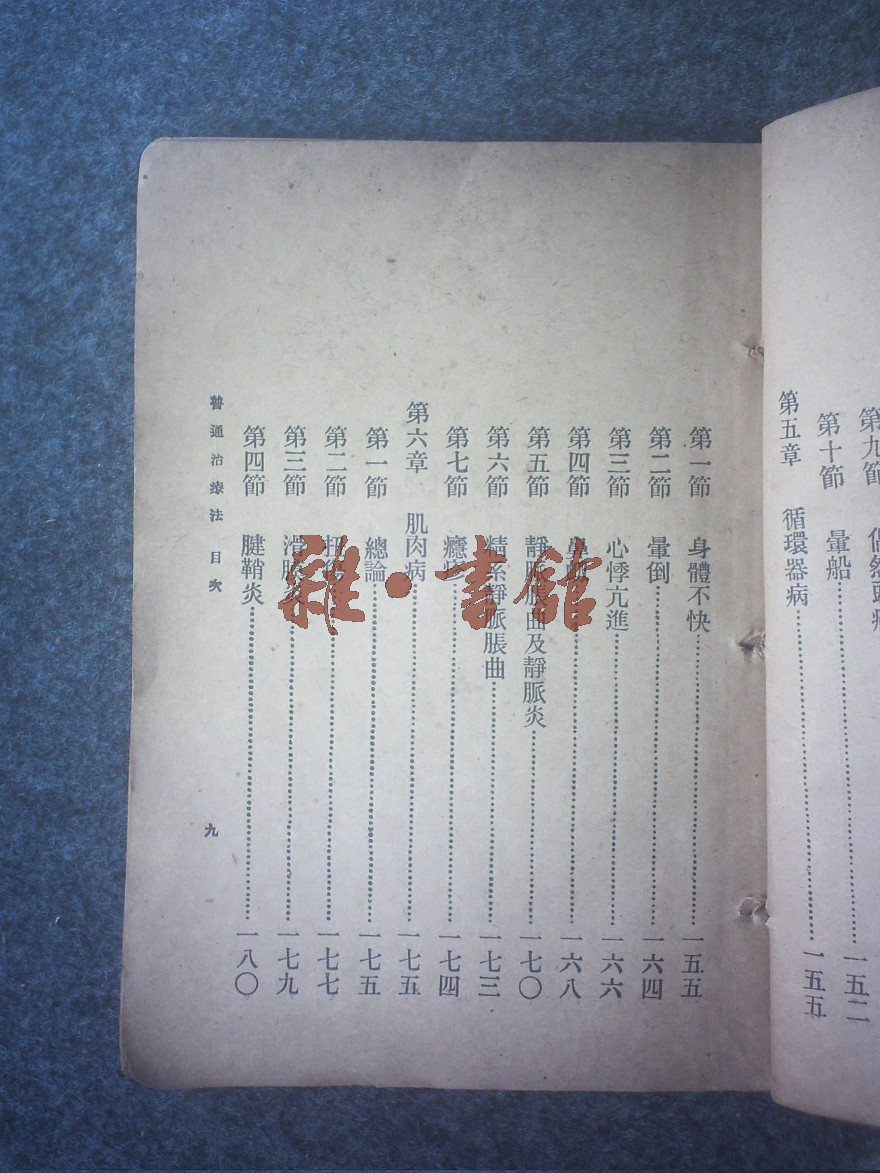 第十節 暈船 一五二
第五章 循環器病 一五五
第一節 身體不快 一五五
第二節 暈倒 一六四
第三節 心悸亢進 一六六
第四節 一六八
第五節 靜脈脹曲及靜脈炎 一七〇
第六節 精系靜脈脹曲 一七三
第七節 癮疹 一七四
第六章 肌肉病 一七五
第一節 總論 一七五
第二節 一七七
第三節 一七九
第四節 腱鞘炎 一八〇
普通治療法 目次
九
雜·書館